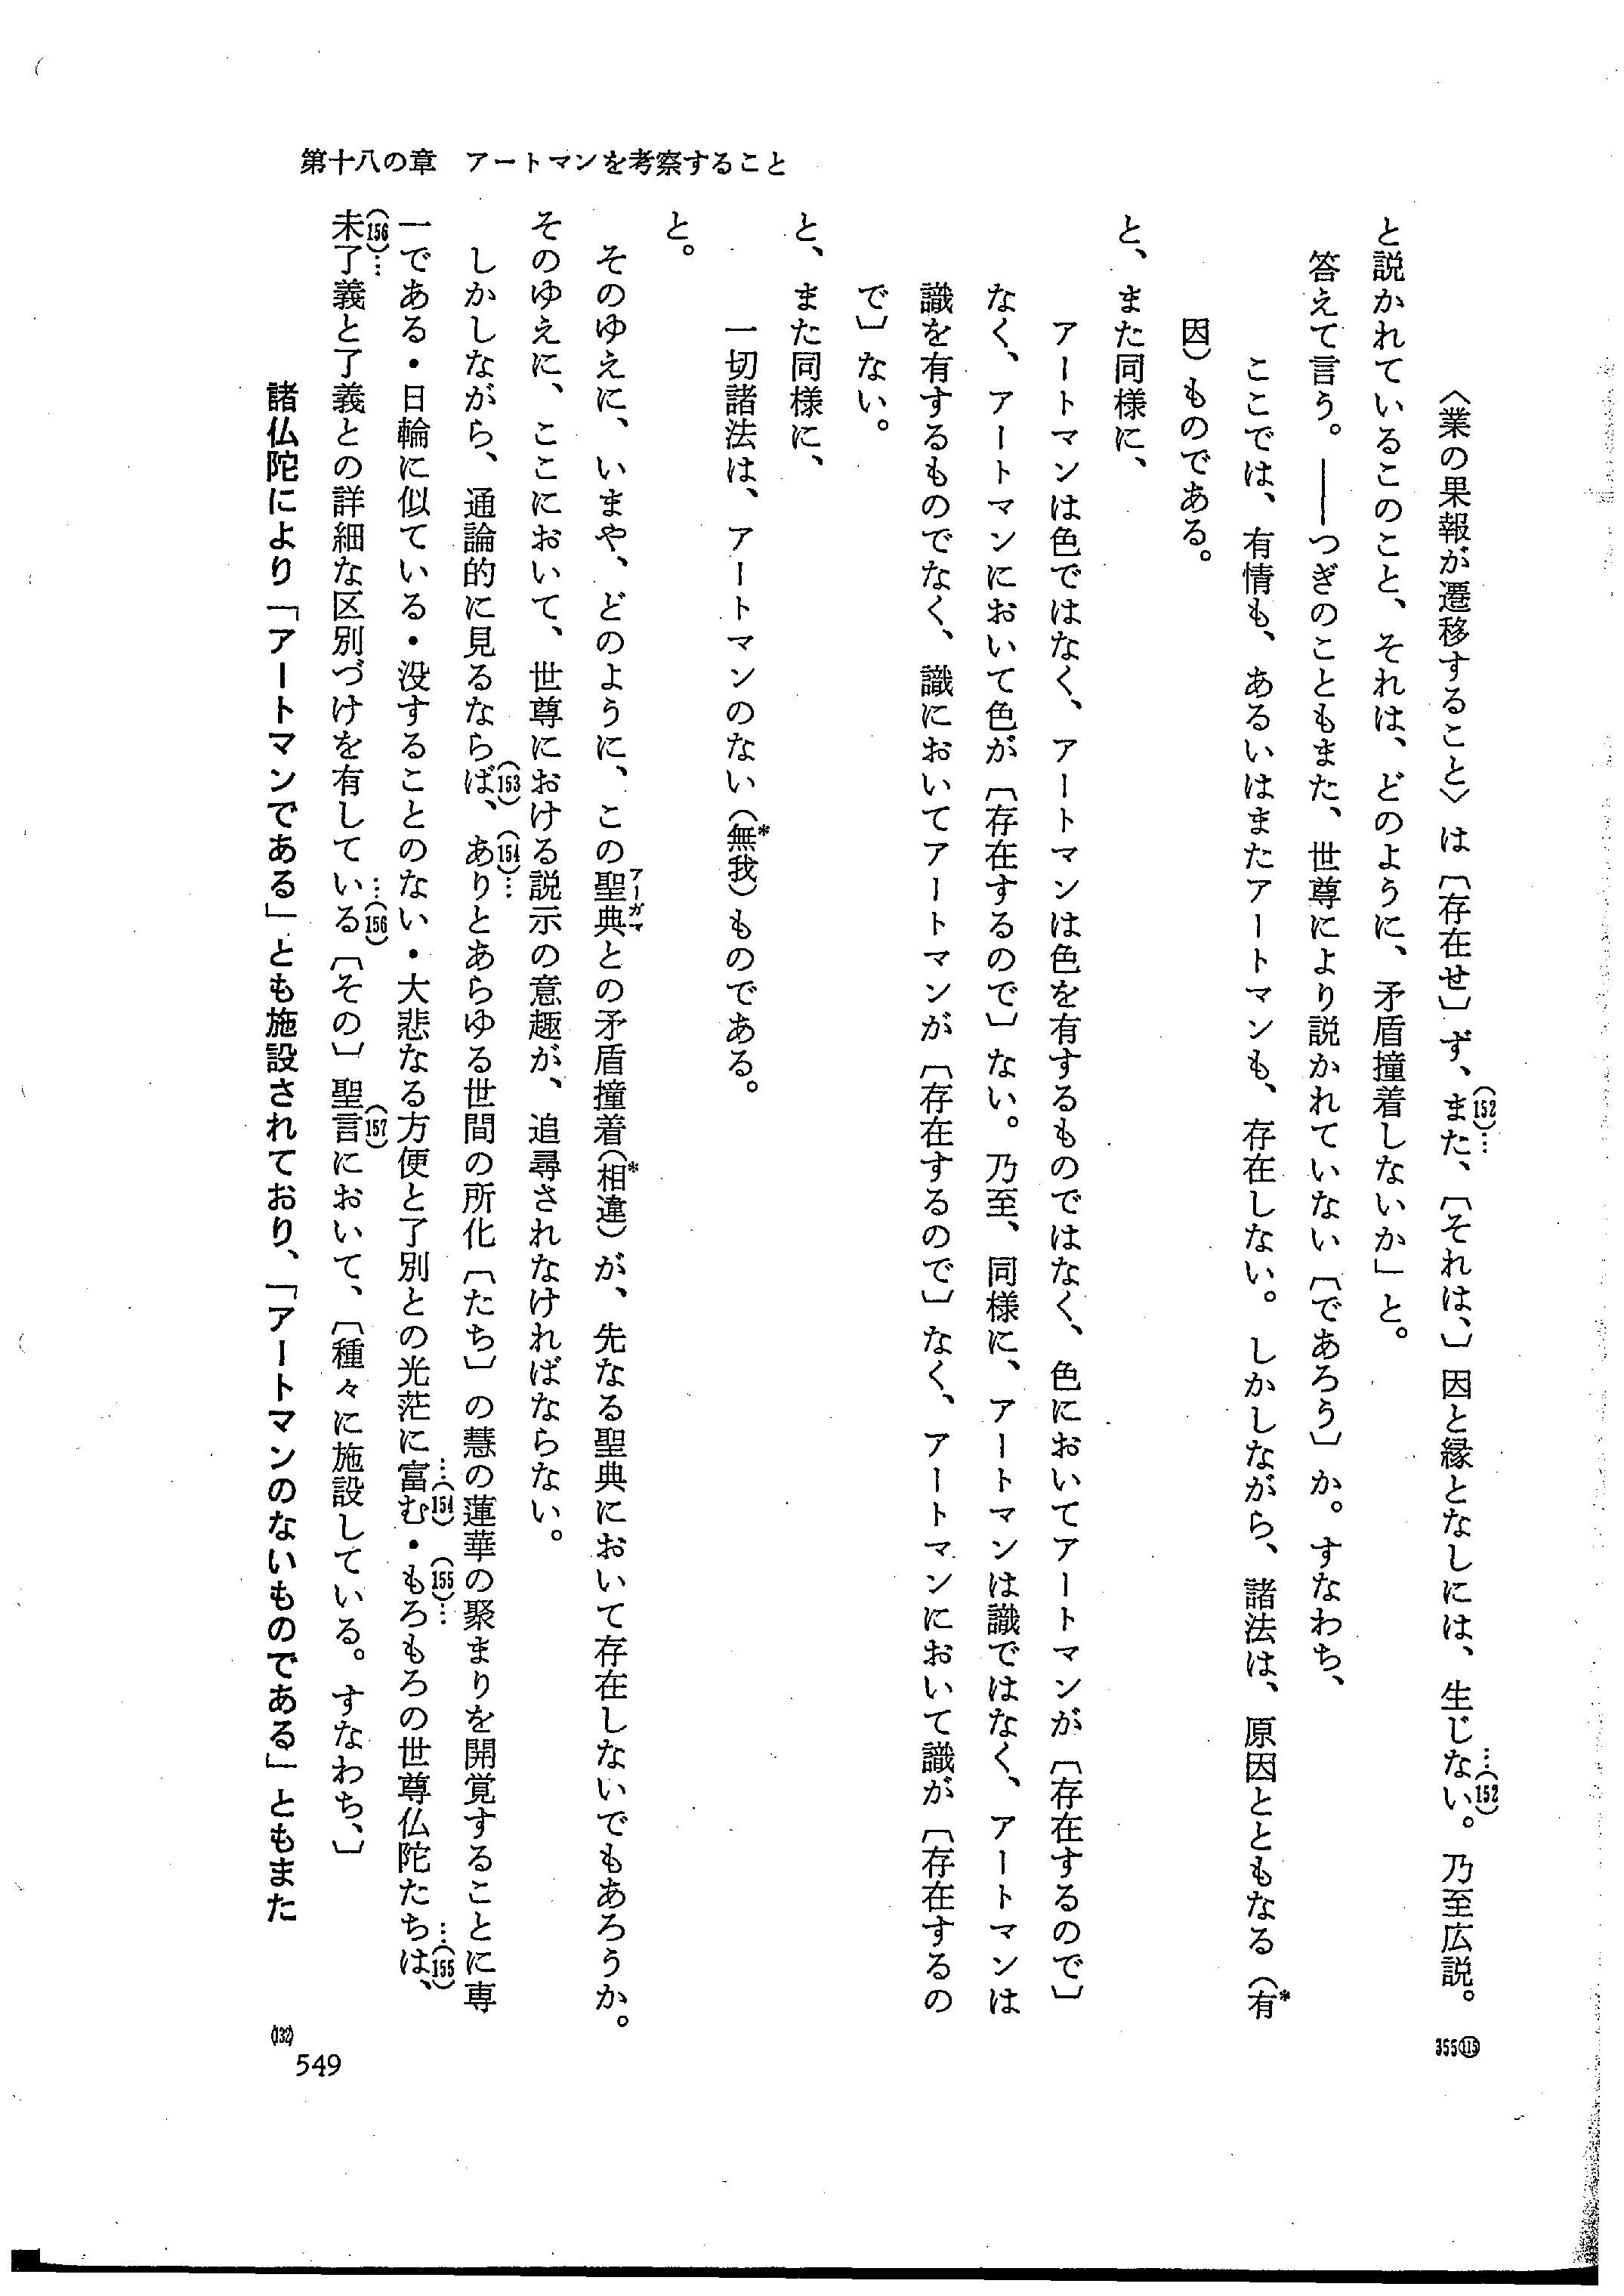 第十八の章　アートマンを考察すること
〈業の果報が遷移すること〉は〔存在せ〕ず、また、〔それは、〕因と縁となしには、生じない。乃至広説。
(152)… …(152)
355 115
と説かれているこのこと、それは、どのように、矛盾撞着しないか」と。
答えて言う。――つぎのこともまた、世尊により説かれていない〔であろう〕か。すなわち、
ここでは、有情も、あるいはまたアートマンも、存在しない。しかしながら、諸法は、原因とともなる（有*
因）ものである。
と、また同様に、
アートマンは色ではなく、アートマンは色を有するものではなく、色においてアートマンが〔存在するので〕
なく、アートマンにおいて色が〔存在するので〕ない。乃至、同様に、アートマンは識ではなく、アートマンは
識を有するものでなく、識においてアートマンが〔存在するので〕なく、アートマンにおいて識が〔存在するの
で〕ない。
と、また同様に、
一切諸法は、アートマンのない（無*我）ものである。
と。
そのゆえに、いまや、どのように、この聖典との矛盾撞着（相*違）が、先なる聖典において存在しないでもあろうか。
アーガマ
そのゆえに、ここにおいて、世尊における説示の意趣が、追尋されなければならない。
しかしながら、通論的に見るならば、ありとあらゆる世間の所化〔たち〕の慧の蓮華の聚まりを開覚することに専
(153) (154)…
一である・日輪に似ている・没することのない・大悲なる方便と了別との光茫に富む・もろもろの世尊仏陀たちは、
…(154) (155)… …(155)
未了義と了義との詳細な区別づけを有している〔その〕聖言において、〔種々に施設している。すなわち、〕
(156)… …(156) (157)
諸仏陀により「アートマンである」とも施設されており、「アートマンのないものである」ともまた
(132)
549